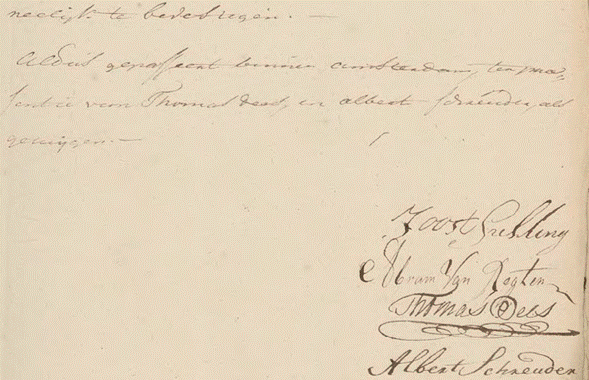 neelijk te bedebregen. —
Aldus gepasseert binnen amsterdam, ter præ„
sentie van Thomas Dees, en albert schreuder, als
getuijgen. —
Joost Grelling
Abram Van Rogten
Thomas Dees
Albert Schreuder